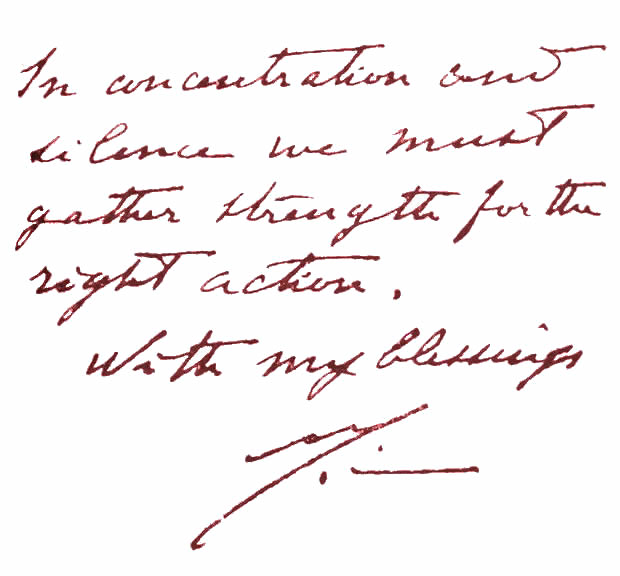 In concentration and
silence we must
gather strength for the
right action.
With my blessings